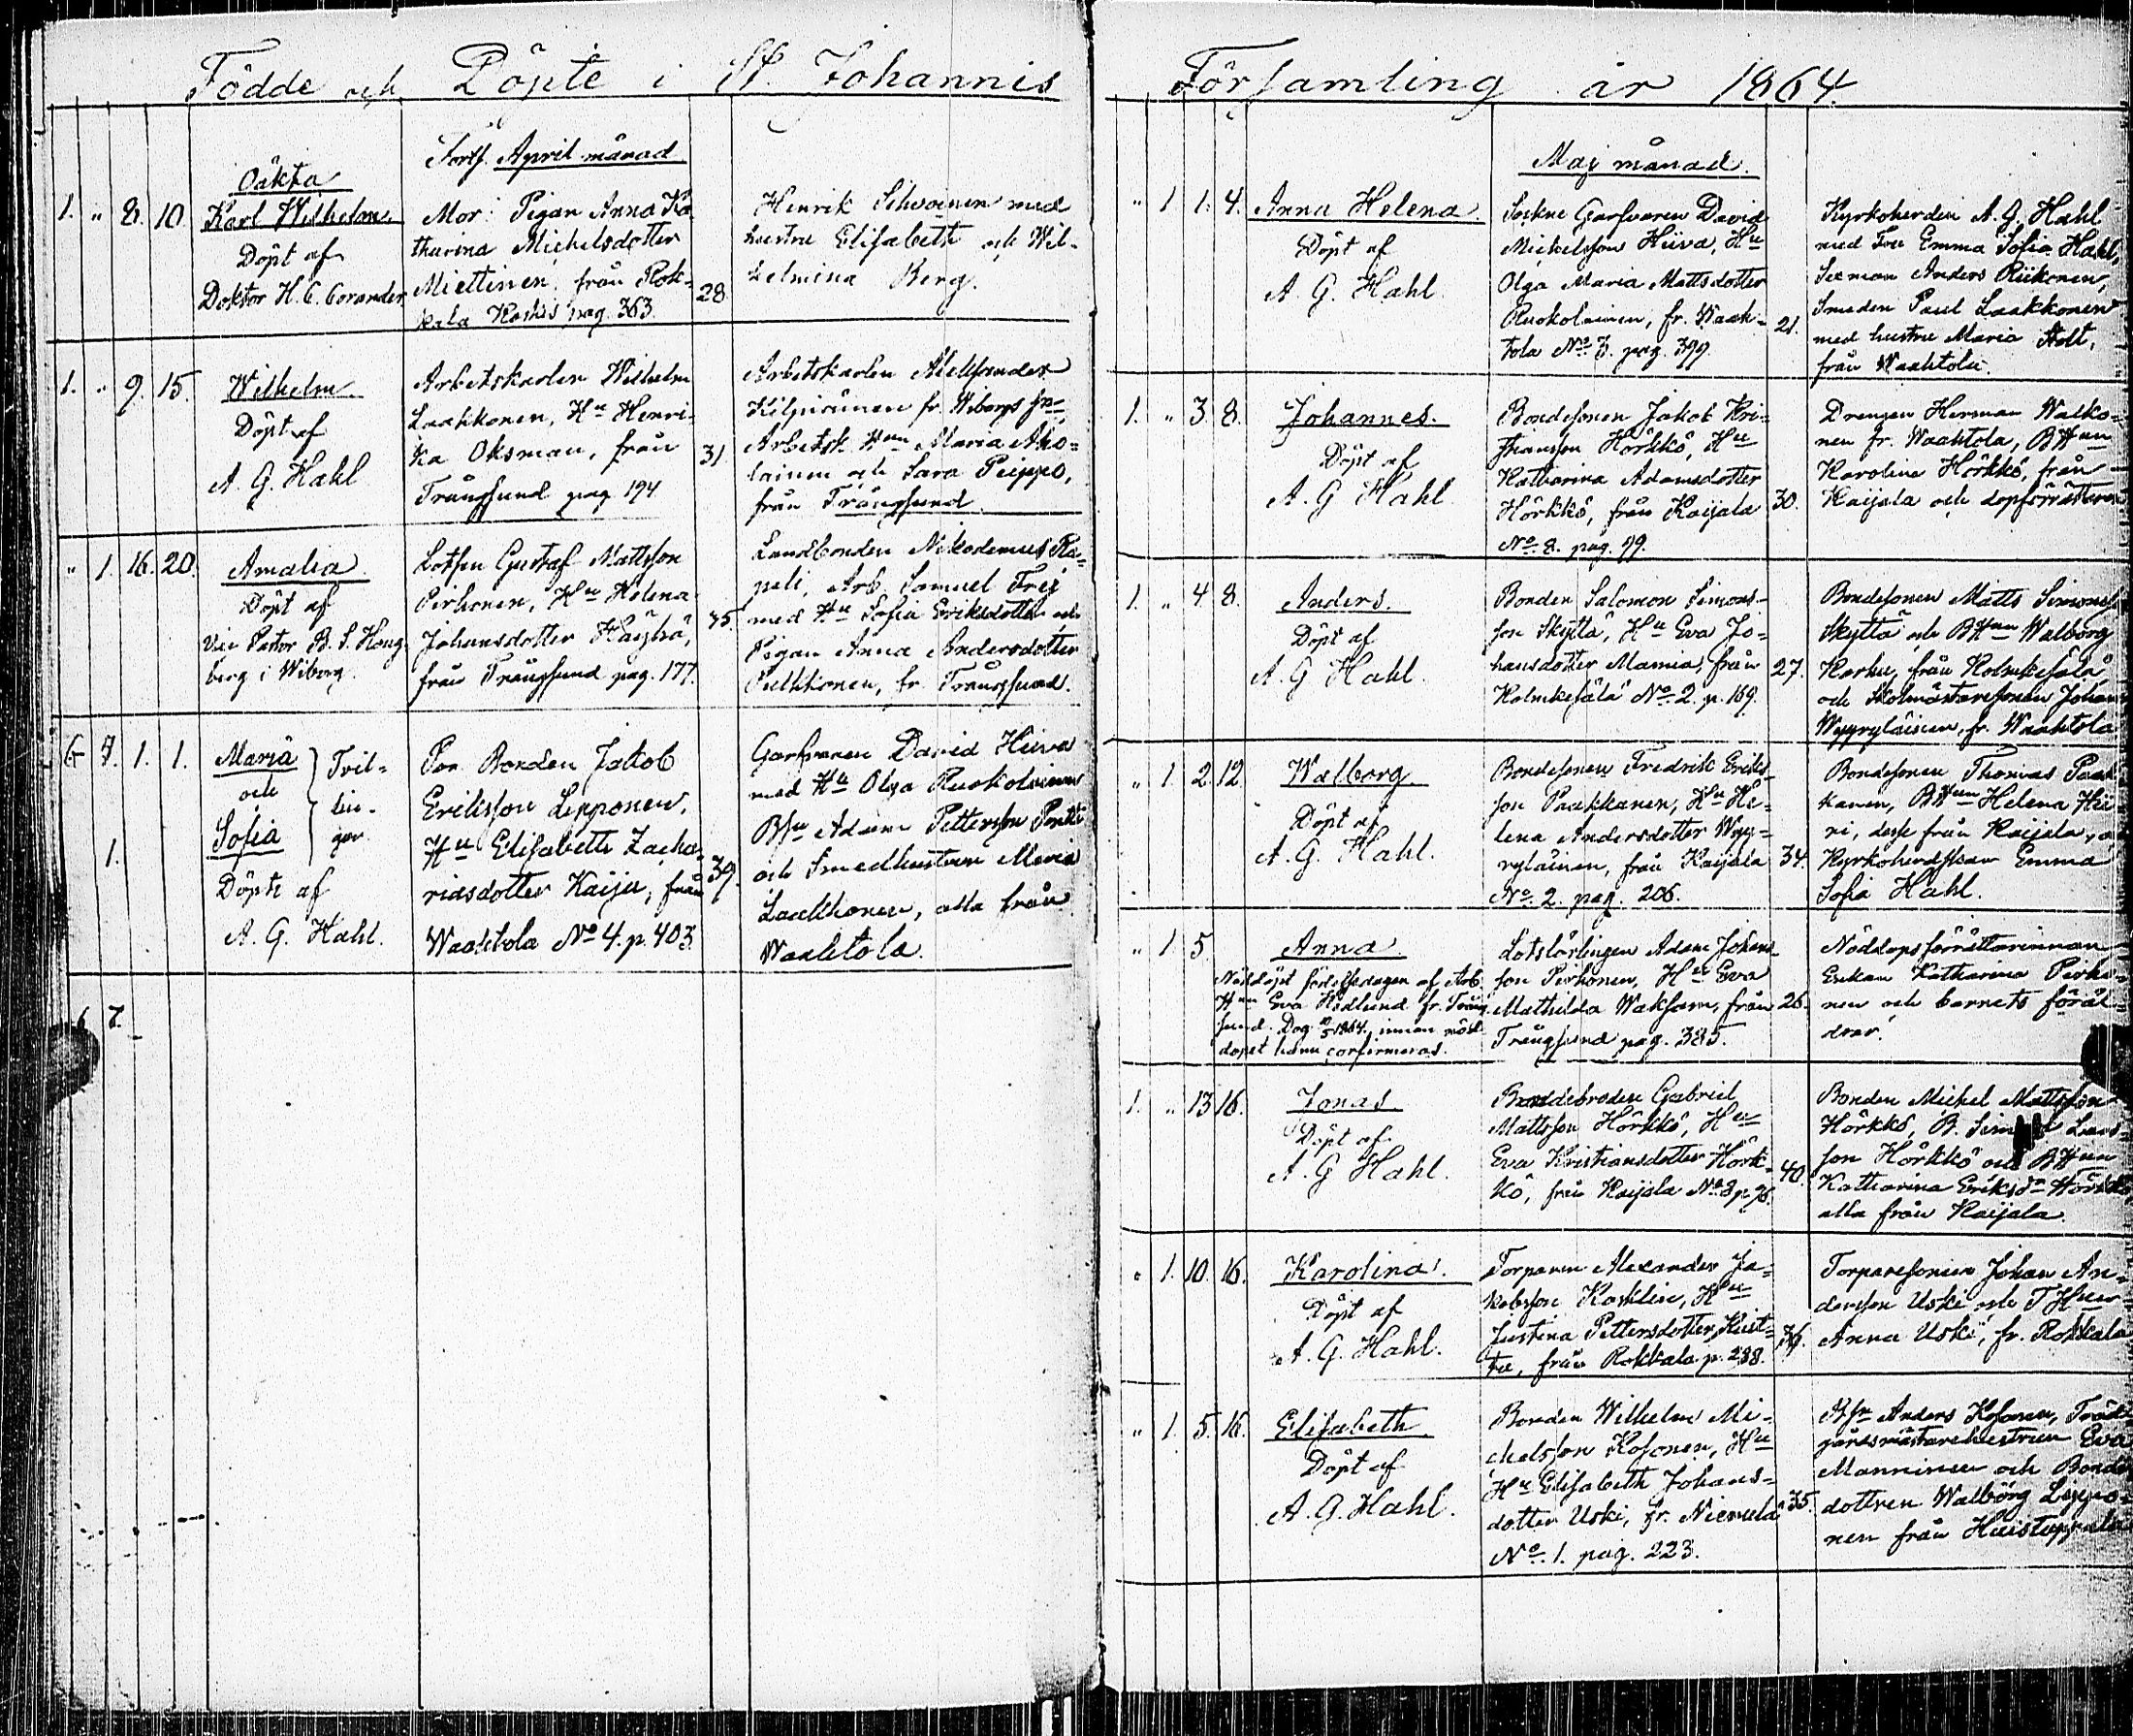 Födde och Döpte i St. Johannis
Fortf. April månad
Oäkta
1. " 8. 10. Karl Wilhelm.
Döpt af
Doktor H. C. Corander
Mor: Pigan Anna Ka-
tharina Michelsdotter
Miettinen, från Rok-
kala Koskis pag. 363.
28.
Henrik Silvonen med
hustru Elisabeth och Wil-
helmina Berg.
1. " 9. 15. Wilhelm
Döpt af
A. G. Hahl
Arbetskarlen Wilhelm
Laakkonen, Hu Henri-
ka Oksman, från
Trångsund pag 194
31.
Arbetskarlen Alexander
fr. Wiborgs
Arbetsk. Hun Maria Aho-
lainen och Sara Peippo,
från Trångsund.
" 1. 16. 20. Amalia.
Döpt af
Vice Pastor B. S. Houg-
berg i Wiborg.
Lotsen Gustaf Mattsson
Pirhonen, Hu Helena
Johansdotter Häyhä,
från Trångsund pag. 177.
35.
Landbonden Nikodemus Ka-
peli, Arb. Samuel Frej
med Hu Sofia Eriksdotter och
Pigan Anna Andersdotter
Pulkkonen, fr. Trångsund.
6 7. 1. 1. Maria
och
Sofia
Tvil-
lin-
gar
1.
Döpte af
A. G. Hahl.
Bonden Jakob
Eriksson Lepponen,
Hu Elisabeth Zacha-
riasdotter Kaiju, från
Waahtola No 4. p. 403.
39.
Garfvaren David Hiiva
med Hu Olga Ruokolainen
Bsn Adam Pettersson Pentti
och Smedhustrun Maria
Laakkonen, alla från
Waahtola.
6 7.
Församling år 1864.
Maj månad.
" 1 1. 4. Anna Helena.
Döpt af
A. G. Hahl.
Sockne Garfvaren David
Mickelsson Hiiva, Hu
Olga Maria Mattsdotter
Ruokolainen, fr. Waah-
tola No 3. pag. 399.
21.
Kyrkoherden A. G. Hahl
med Fru Emma Sofia Hahl,
Sexman Anders Riikonen,
Smeden Paul Laakkonen
med hustru Maria Holt,
från Waahtola.
1. " 3. 8. Johannes.
Döpt af
A. G Hahl
Bondesonen Jakob Kri-
stiansson Hörkkö, Hu
Katharina Adamsdotter
Hörkkö, från Kaijala
No 8. pag. 79.
30.
Drengen Herman Walko-
nen fr. Waahtola, BHun
Karolina Hörkkö, från
Kaijala och dopförrättaren
1. " 4 8. Anders.
Döpt af
A. G Hahl.
Bonden Salomon Simons-
son Skyttä, Hu Eva Jo-
hansdotter Mamia, från
Kolmikesälä No 2. p. 169.
27.
Bondesonen Matts Simonss.
Skyttä och BHun Walborg
Karhu, från Kolmikesälä,
och Skolmästaresonen Johan
Wyyryläinen, fr. Waahtola
" 1. 2. 12 Walborg.
Döpt af
A. G. Hahl.
Bondesonen Fredrik Eriks-
son Paakkanen, Hu He-
lena Andersdotter Wyy-
ryläinen, från Kaijala
No 2. pag. 206.
34.
Bondesonen Thomas Paak-
kanen, BHun Helena Hii-
ri, desse från Kaijala, o
Kyrkoherdskan Emma
Sofia Hahl.
" 1. 5. Anna.
Nöddöpt födelsedagen af Arb.
Hun Eva Hedlund fr. Trång-
sund. Dog 10/5 1864, innan nöd-
dopet hann confirmeras.
Lotslärlingen Adam Johans-
son Pirhonen, Hu Eva
Mathilda Waksam, från
Trångsund pag. 385.
26.
Nöddopsförrättarinnan
Enkan Katharina Pirho-
nen och barnets föräl-
drar.
1. " 13 16. Jonas.
Döpt af
A. G Hahl.
Bondebroden Gabriel
Mattsson Hörkkö, Hu
Eva Kristiansdotter Hörk-
kö, från Kaijala No 8 p. 76.
40.
Bonden Michel Mattsson
Hörkkö, B. Lars-
son Hörkkö och BHun
Katharina Eriksdr Hörkkö
alla från Kaijala.
" 1. 10. 16. Karolina.
Döpt af
A. G. Hahl.
Torparen Alexander Ja-
kobsson Kosklin, Hu
Justina Pettersdotter Kist-
, från Rokkala p. 288.
36.
Torparesonen Johan An-
dersson Uski och THun
Anna Uski, fr. Rokkala
" 1. 5. 16. Elisabeth.
Döpt af
A. G. Hahl.
Bonden Wilhelm Mi-
chelsson Kosonen, Hu
Hu Elisabeth Johans-
dotter Uski, fr. Niemelä
No 1. pag. 223.
35.
Bsn Anders Kosonen, Träd-
gårdsmästarehustrun Eva
Manninen och Bonde
dottren Walborg Leppo-
nen från